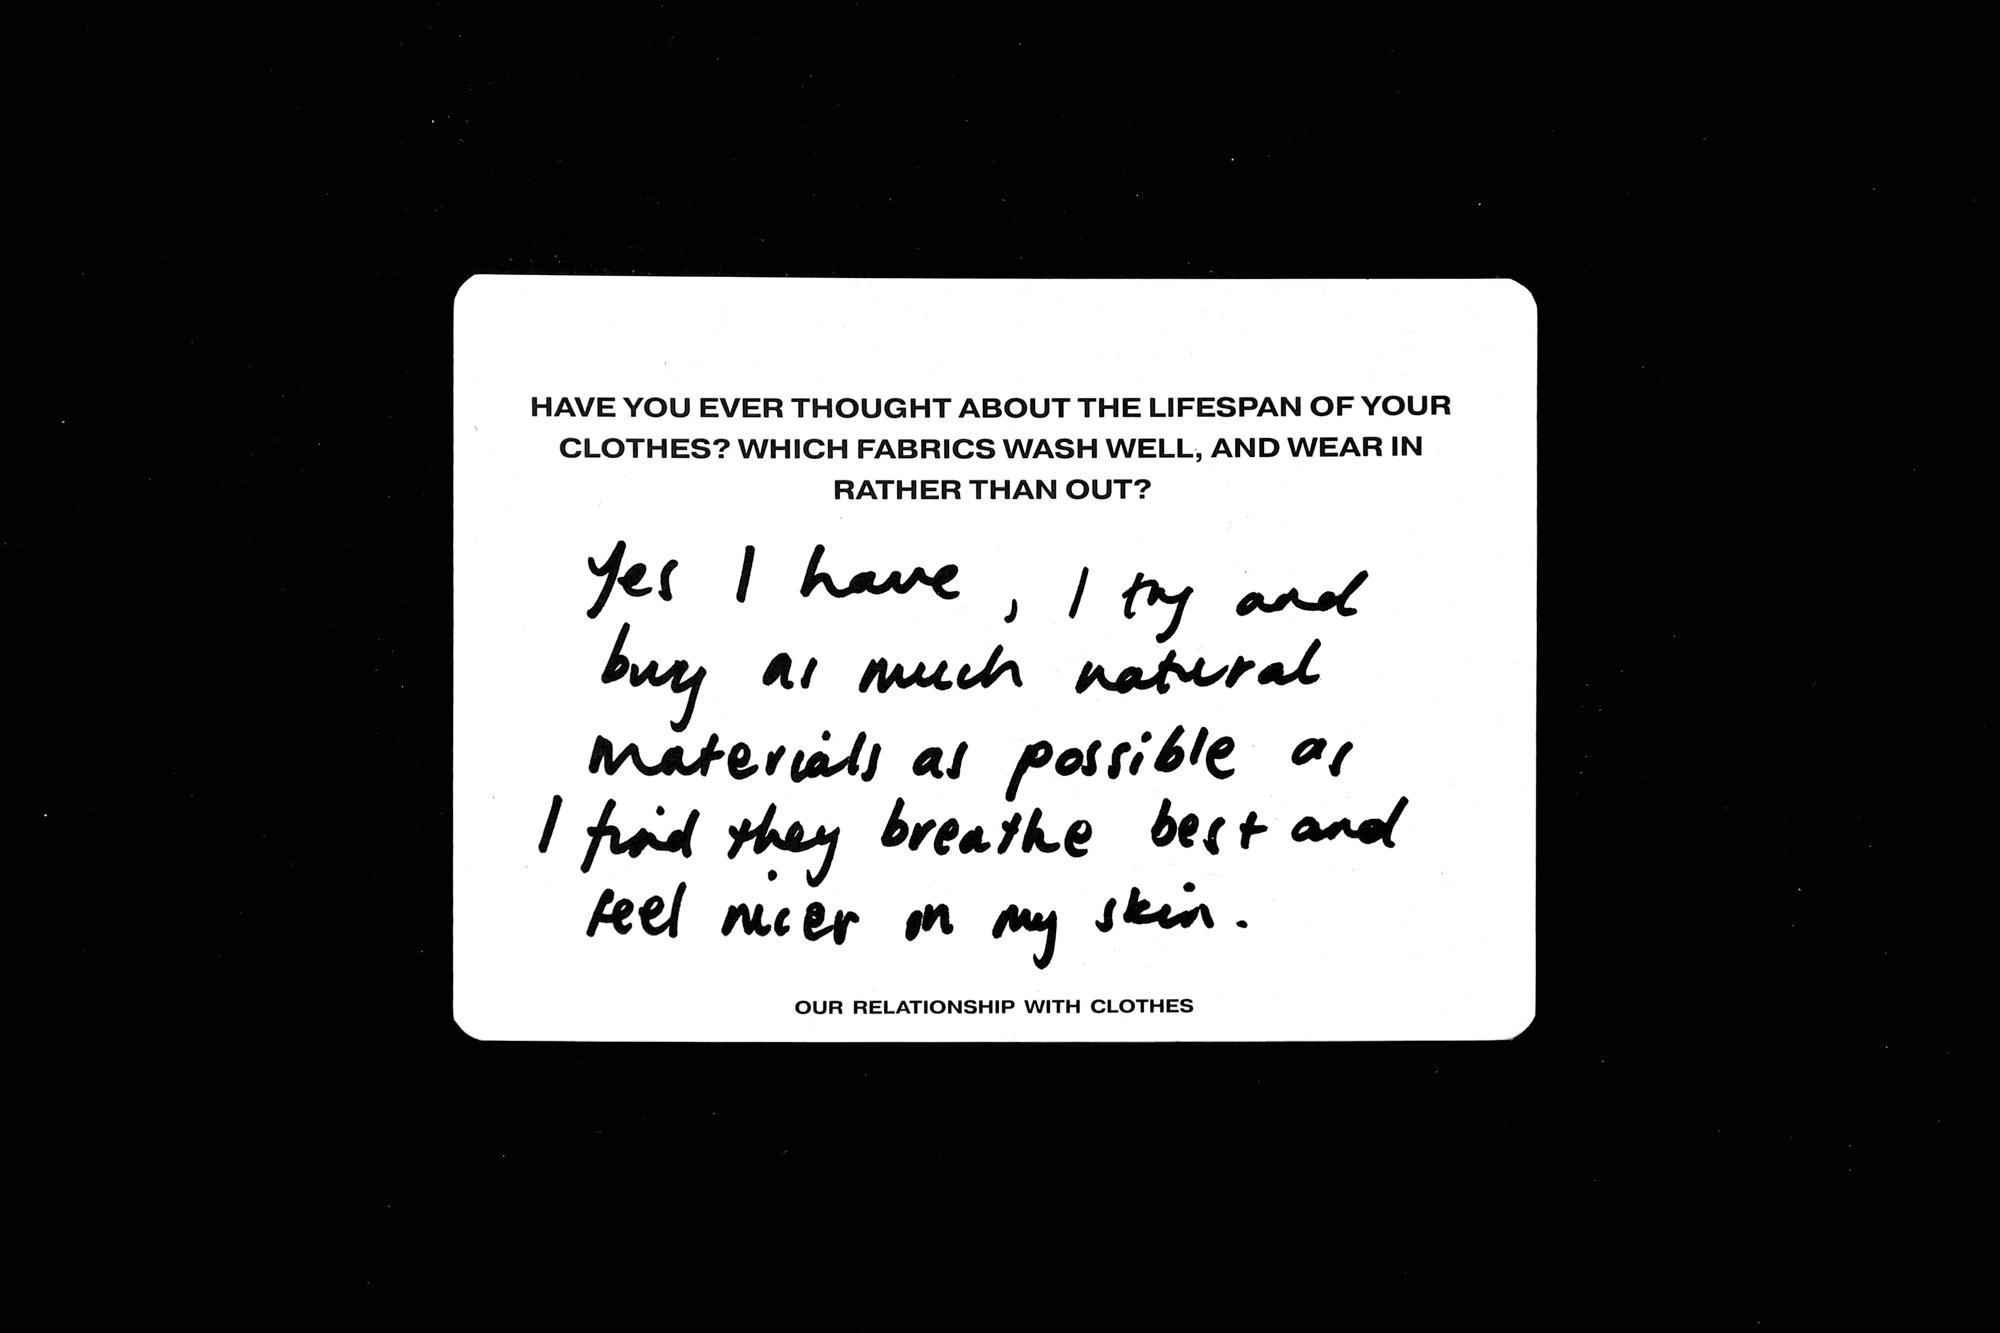 HAVE YOU EVER THOUGHT ABOUT THE LIFESPAN OF YOUR
CLOTHES? WHICH FABRICS WASH WELL, AND WEAR IN
RATHER THAN OUT?
Yes I have, I try and
buy as much natural
materials as possible as
I find they breathe best and
feel nicer on my skin.
OUR RELATIONSHIP WITH CLOTHES